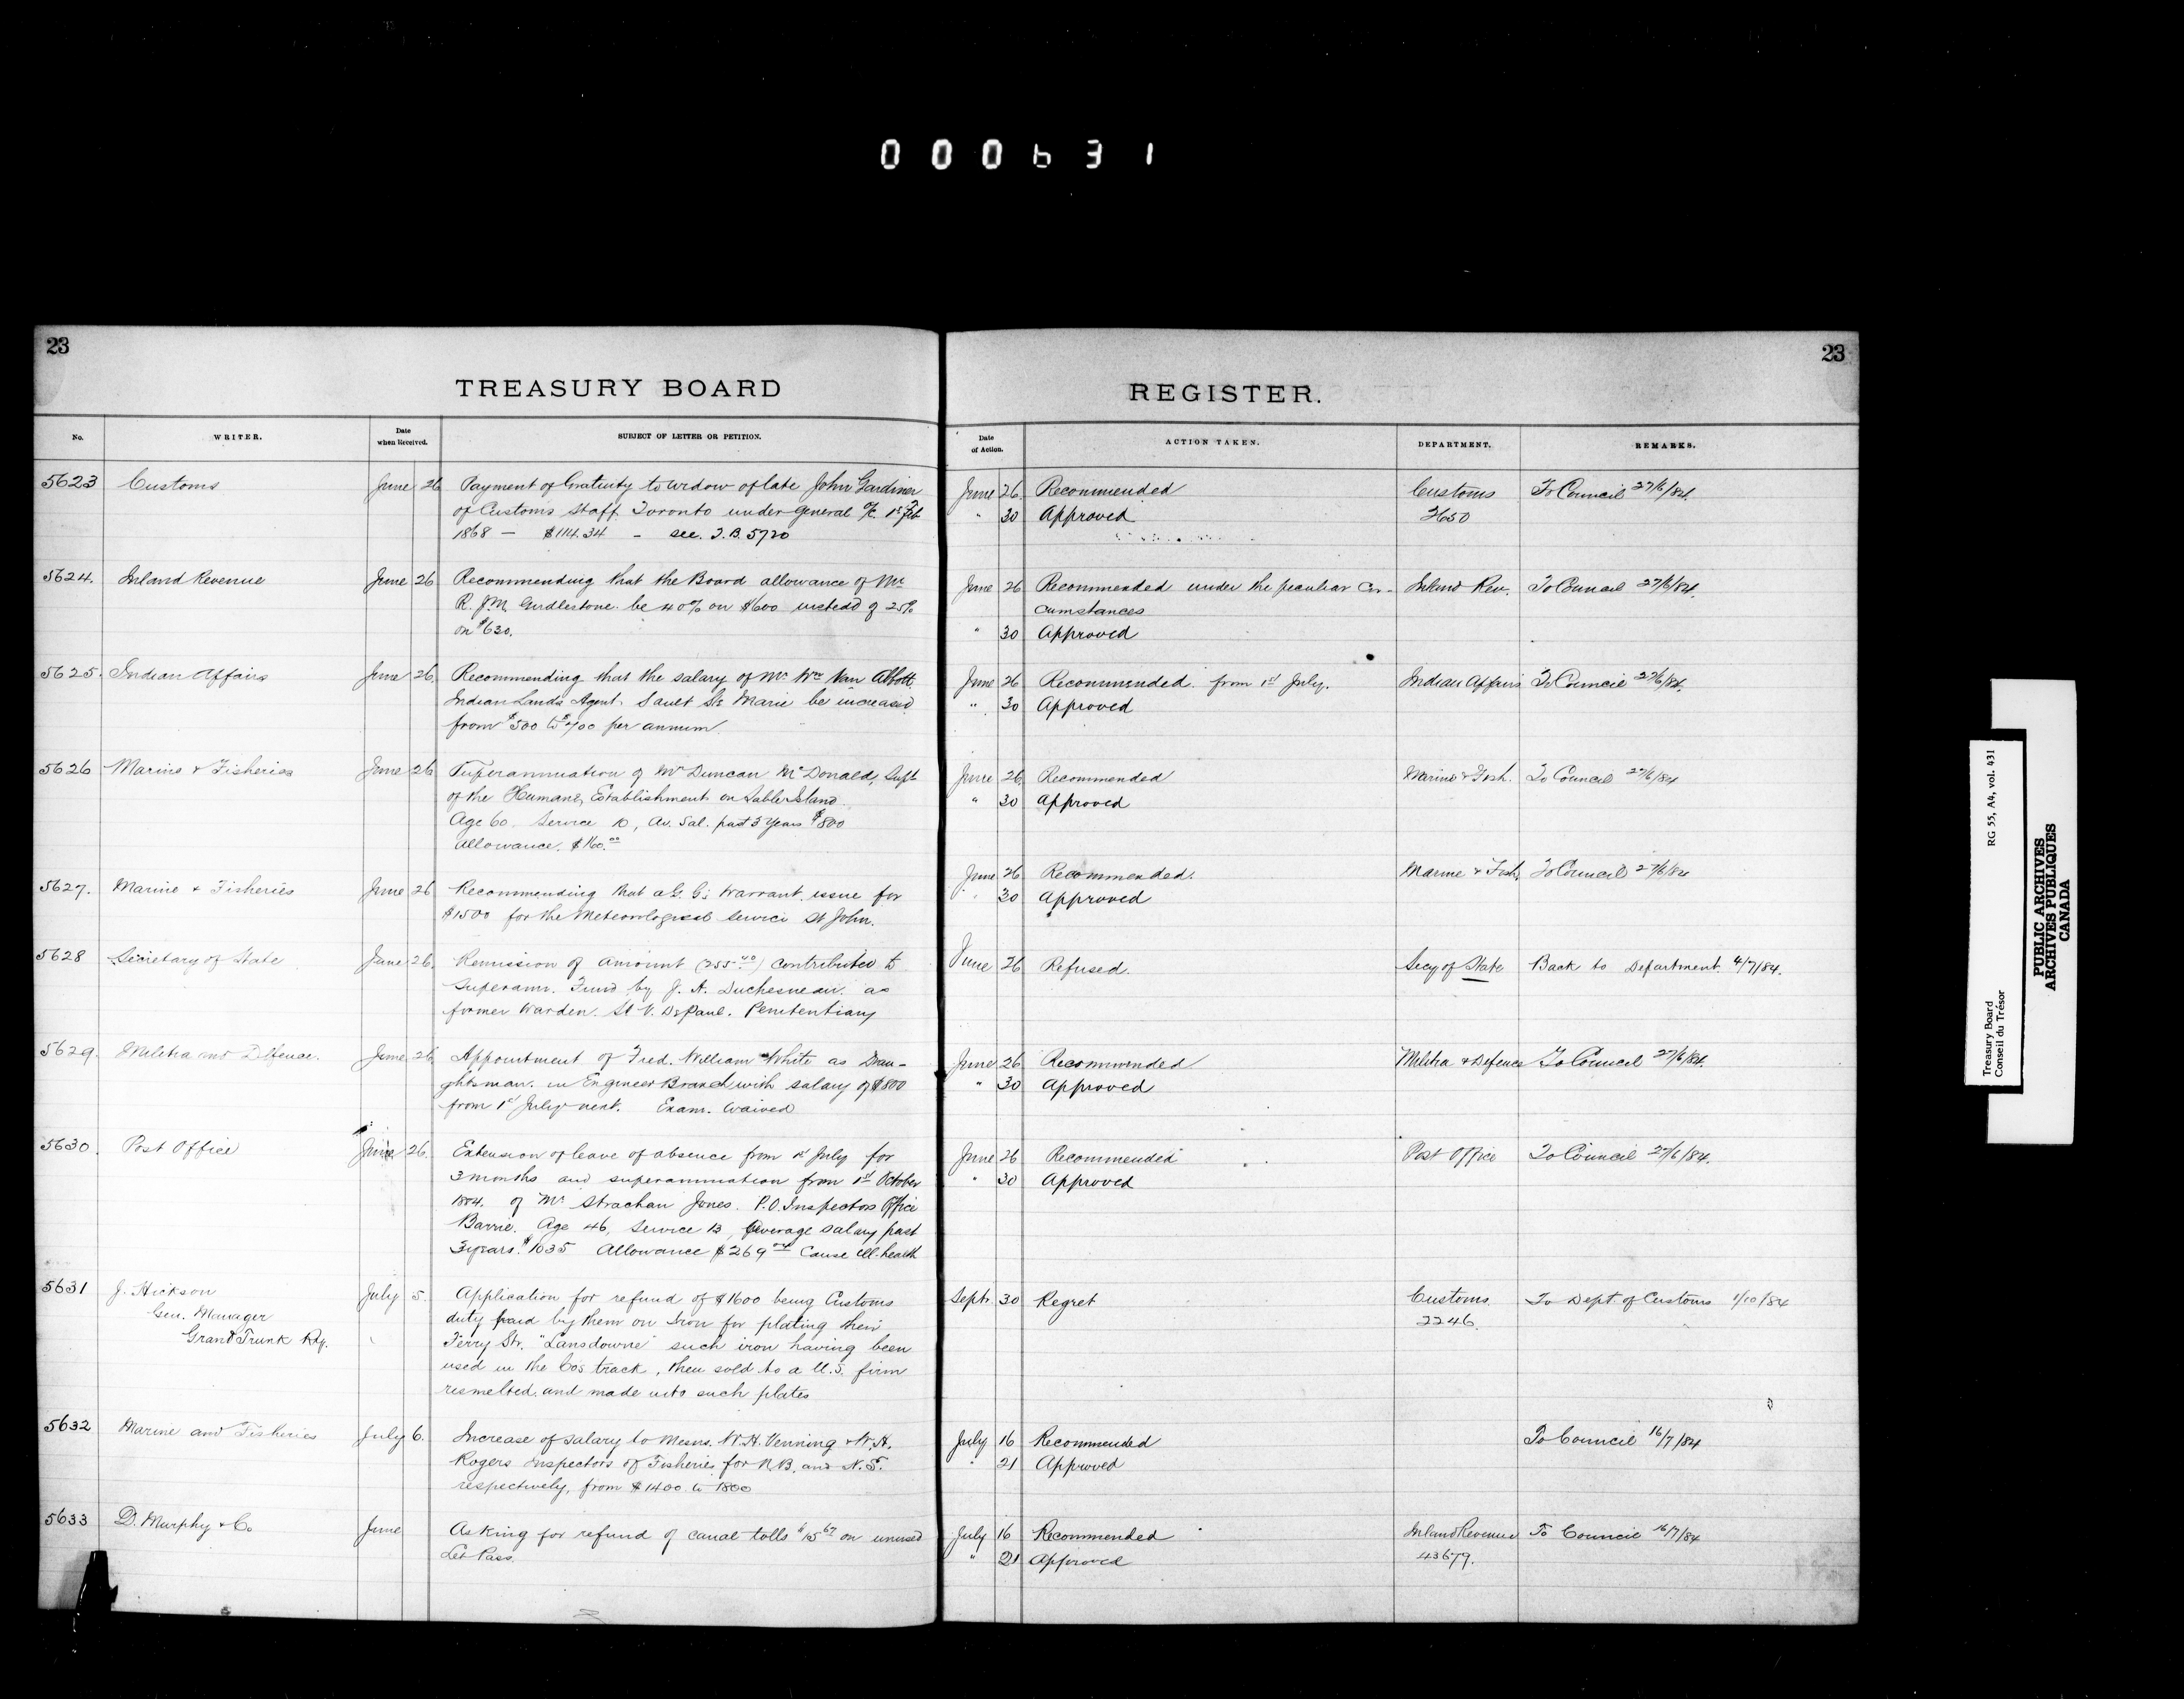 000631
23
23
TREASURY BOARD
REGISTER.
No.
WRITER.
Date
when Received.
SUBJECT OF LETTER OR PETITION.
Date
of Action.
ACTION TAKEN.
DEPARTMENT.
REMARKS.
5623 Customs June 26 Payment of Gratuity to widow of late John Gardiner June 26 Recommended Customs To Council 27/6/84
of Customs Staff Toronto under General O/C. 1st Feb " 30 Approved 2650
1868 — $114.34 - see. T.B. 5720
5624. Inland Revenue June 26 Recommending that the Board allowance of Mr June 26 Recommended under the peculiar Cir- Inland Rev. To Council 27/6/84.
R. J.M. Girdlestone be 40% on $600 instead of 25% cumstances
on $630. " 30 Approved
5625. Indian Affairs June 26. Recommending that the salary of Mr. Wm Van Abbott June 26 Recommended from 1st July. Indian Affairs To Council 27/6/84.
Indian Lands Agent. Sault Ste Marie be increased " 30 Approved
from $500 to $700 per annum
5626 Marine & Fisheries June 26 Superannuation of Mr Duncan McDonald, Supt June 26 Recommended Marine & Fish. To Council 27/6/84
of the Humane Establishment on Sable Island " 30 Approved
Age 60. Service 10, Av. Sal. past 3 years $800
Allowance. $160.00
5627. Marine & Fisheries June 26 Recommending that a G. G's Warrant issue for June 26 Recommended. Marine & Fish. To Council 27/6/84
$1500 for the Meteorological Service St John. " 30 Approved
5628 Secretary of State June 26. Remission of amount (255.40) contributed to June 26 Refused. Secy of State Back to Department. 4/7/84.
Superann. Fund by J. A. Duchesneau as
former Warden. St V. DePaul. Penitentiary
5629. Militia and Defence. June 26. Appointment of Fred. William White as Drau- June 26 Recommended Militia & Defence To Council 27/6/84.
ghtsman. in Engineer Branch with salary of $800 " 30 Approved
from 1st July next. Exam. Waived
5630. Post Office June 26. Extension of leave of absence from 1st July for June 26 Recommended Post Office To Council 27/6/84.
3 months and superannuation from 1st October " 30 Approved
1884. of Mr. Strachan Jones. P.O. Inspectors Office
Barrie. Age 46, Service 13, Average salary past
3 years. $1035 Allowance $269 Cause ill-health
5631 J. Hickson July 5. Application for refund of $1600 being Customs Sept. 30 Regret Customs. To Dept. of Customs 1/10/84
Gen. Manager duty paid by them on iron for plating their 2246.
Grand Trunk Rly. Ferry Str. "Lansdowne" such iron having been
used in the Cos track, then sold to a U.S. firm
resmelted and made into such plates
5632 Marine and Fisheries July 6. Increase of salary to Messrs. W.H. Venning & W.H. July 16 Recommended To Council 16/7/84
Rogers Inspectors of Fisheries for N.B. and N.S. " 21 Approved
respectively, from $1400 to 1800
5633 D. Murphy & Co June Asking for refund of canal tolls $15 67 on unused July 16 Recommended Inland Revenue To Council 16/7/84
Let Pass. " 21 Approved 43679.
Treasury Board RG 55, A4, vol. 431
Conseil du Trésor
PUBLIC ARCHIVES
ARCHIVES PUBLIQUES
CANADA